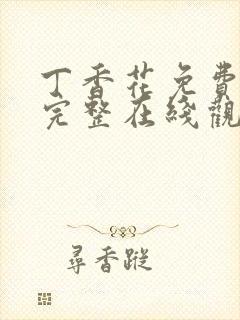 丁香花免費
完整在綫觀
尋香蹤